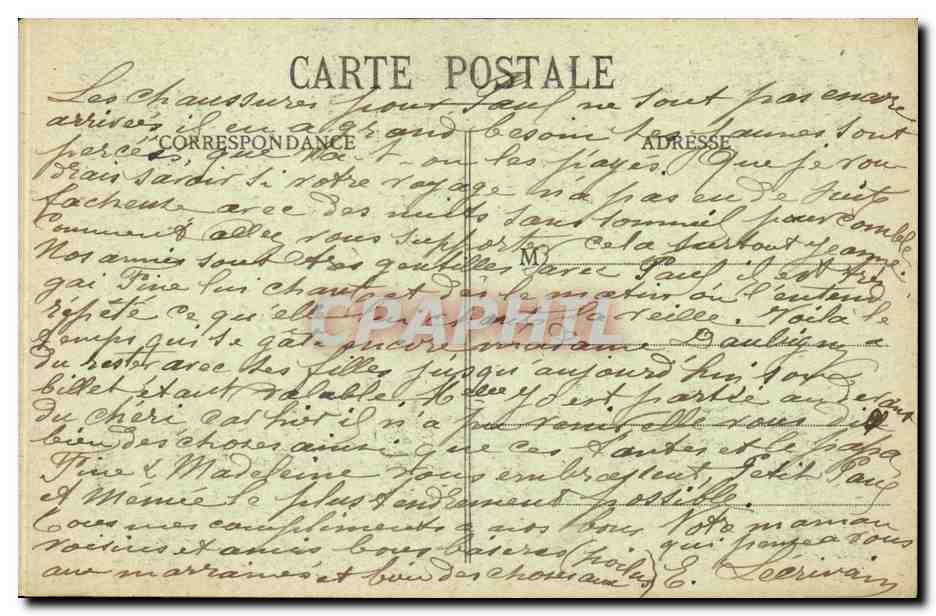 CARTE POSTALE
Les chaussures pour Paul ne sont pas encore
arrivées, il en a grand besoin les jaunes sont
CORRESPONDANCE
ADRESSE
percés, que l'a t-on les payés. Que je vou
drais savoir si votre voyage n'a pas eu de suite
facheuse avec des nuits sans sommeil pour comble
Comment allez vous supporter cela surtout Jeanne.
M
Nos amies sont très gentilles avec Paul il est très
gai Fine lui chante et dès le matin on l'entend
répété ce qu'elle la veille. Voila le
temps qui se gâte encore madame Daubigny a
du rester avec ses filles jusqu'aujourd'hui son
billet étant valable. Melle Yo est partie au devant
du chéri car hier il n'a pu venir elle vous dit
bien des choses ainsi que ces tantes et le papa
Fine & Madeleine vous embrassent, Petit Paul
et Memée le plus tendrement possible.
tous mes compliments a nos bons
Votre maman
voisins et amis bons baisers (poilus)
qui pense a vous
aux marraines et bien des choses aux
E. Lécrivain
CPAPHIL